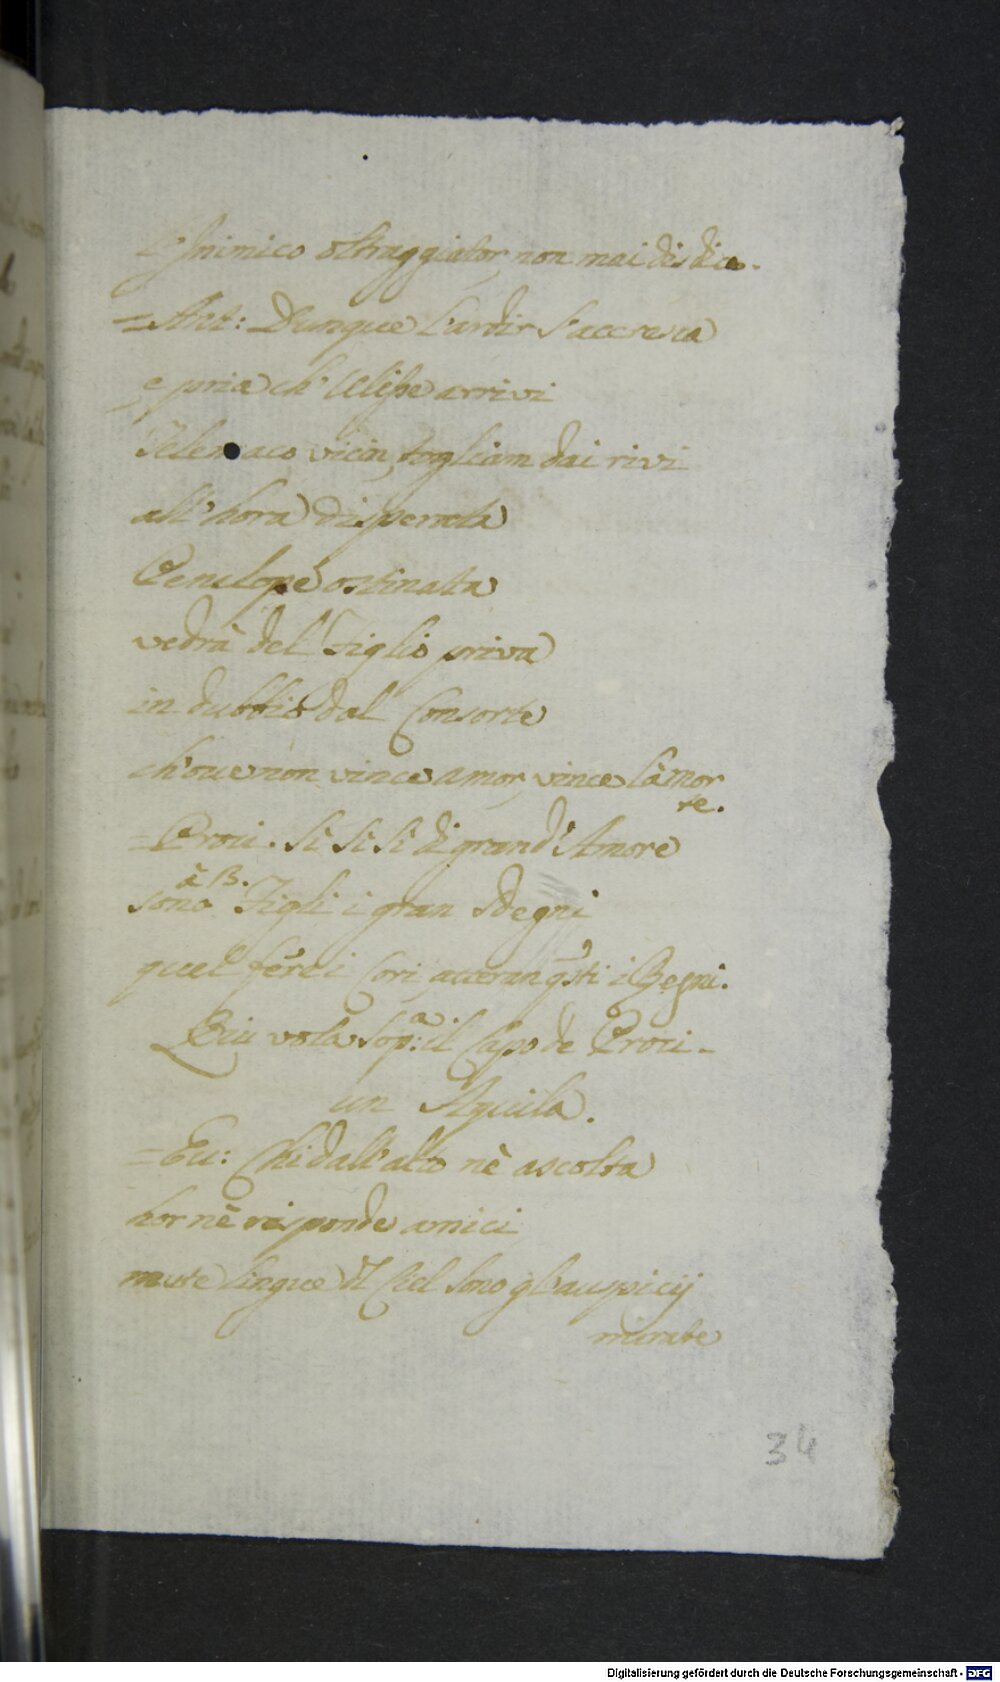 L'Inimico oltraggiator, non mai disdice.
= Ant: Dunque l'ardir s'accresca
e pria ch'Ulisse arrivi
Telemaco vicin, togliam dai rivi
all'hora disperata
Penelope ostinata
vedrà del figlio priva
in dubbio dal Consorte
ch'oue non vince amor, vince la mor
te.
= Proci. Sì sì sì di grand'Amore
à 3.
sono Figli i gran sdegni
quel feroci Cori, acceran q.sti i Regni.
Qui vola sop.a il Capo de Proci
un Aquila.
= Eu: Chi dall'alto nè ascolta
hor nè risponde amici
mute lingue del Ciel sono gl'auspicij
mirate
34
Digitalisierung gefördert durch die Deutsche Forschungsgemeinschaft - DFG